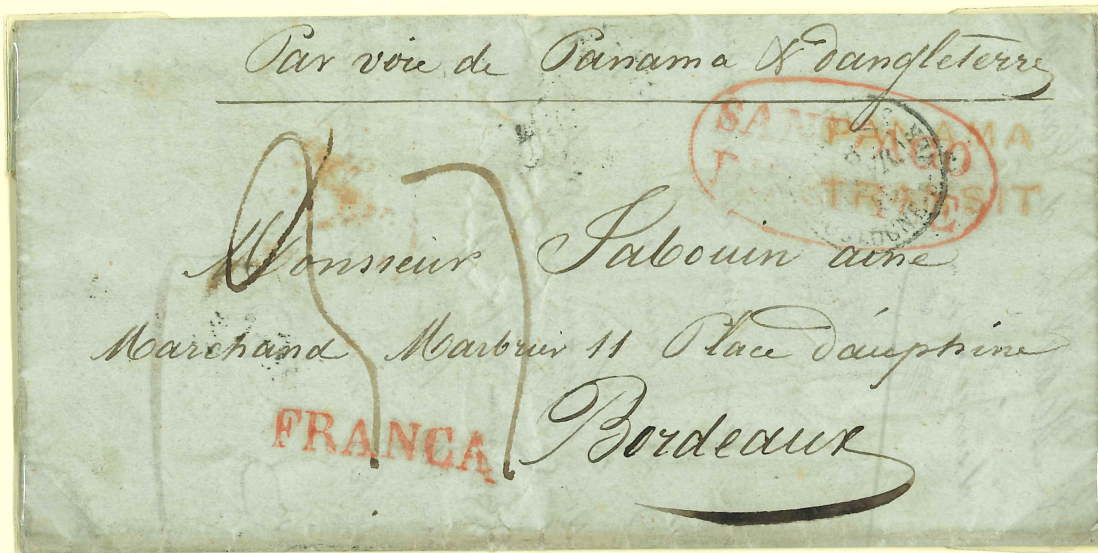 Par voie de Panama & dangleterre
SANTIAGO
PANAMA
TRANSIT
Monsieur Jabouin ainé
Marchand Marbrier 11 Place dauphine
FRANCA
Bordeaux